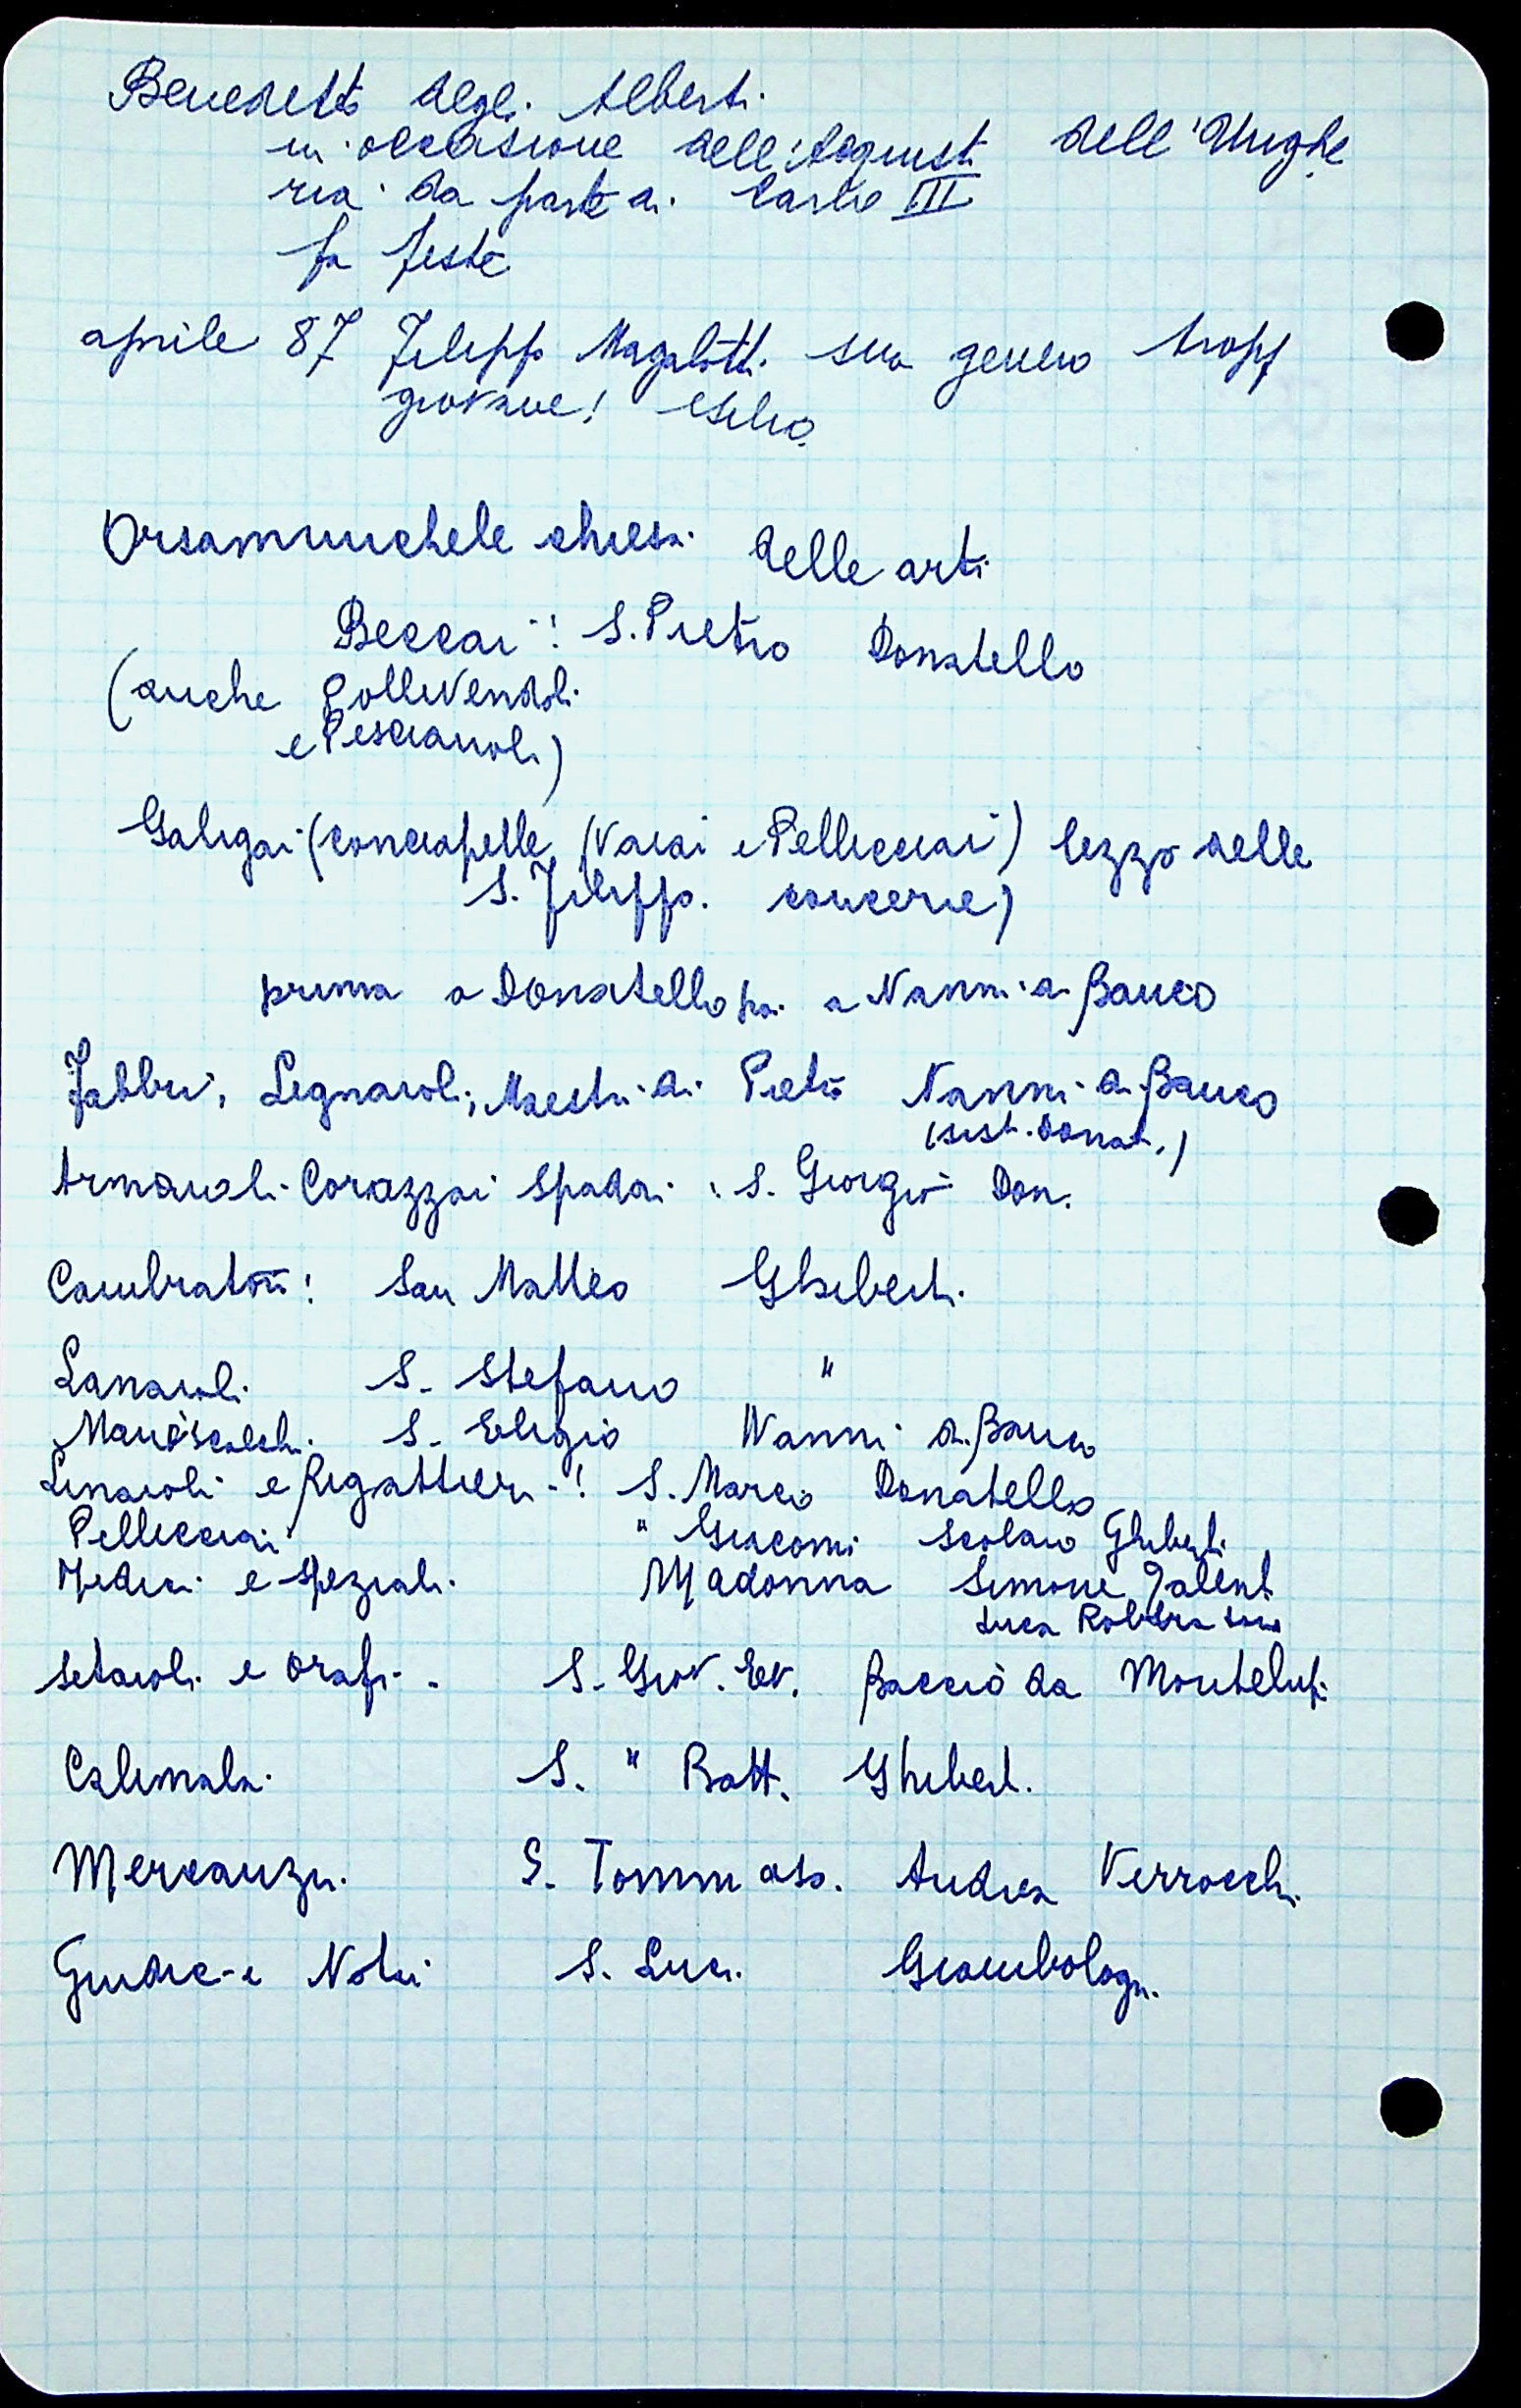 Benedetto degli Alberti
in occasione dell'Acquist. dell'Unghe
ria da parte di Carlo III
fa feste
aprile 87 Filippo Magalotti suo genero tropp
giovane! esilio.
Orsammichele chiesa delle arti
Beccai: S. Pietro Donatello
(anche Pollivendoli
e Pesciaiuoli)
Galigai (conciapelle, (Vaiai e Pellicciai) lezzo delle
S. Filippo. concerie)
prima a Donatello poi a Nanni di Banco
Fabbri, Legnaioli, Maestri di Pietra Nanni di Banco
(sist. Donat.)
Armaioli Corazzai Spadai: S. Giorgio Don.
Cambiatori: San Matteo Ghiberti
Lanaioli S. Stefano "
Maniscalchi S. Eligio Nanni di Banco
Linaioli e Rigattieri: S. Marco Donatello
Pellicciai " Giacomo scolaro Ghiberti
Medici e Speziali Madonna Simone Talenti
Luca Robbia
Setaioli e Orafi - S. Giov. Ev. Baccio da Montelupo
Calimala S. " Batt. Ghiberti.
Mercanzia S. Tommaso. Andrea Verrocchi
Giudici e Notai S. Luca Giambologna